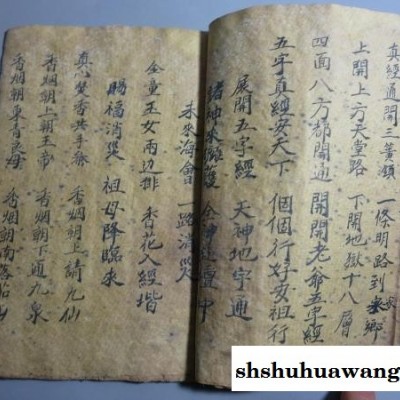 真經通開三黃嶺 一條明路到鄉
上開上方天堂路 下開地獄十八層
四面八方都開通 開開老爺五字經
五字真經安天下 個個行好安祖行
展開五字經 天神地字通
諸神來擁護 全神壇中
未來海會 一路消災
全童玉女兩邊排 香花入經堦
賜福消災 祖母降臨來
真心焚香共手 香烟朝上請九仙
香烟朝上朝玉帝 香烟朝下通九泉
香烟朝東 香烟朝南落伽山
shshuhuawang